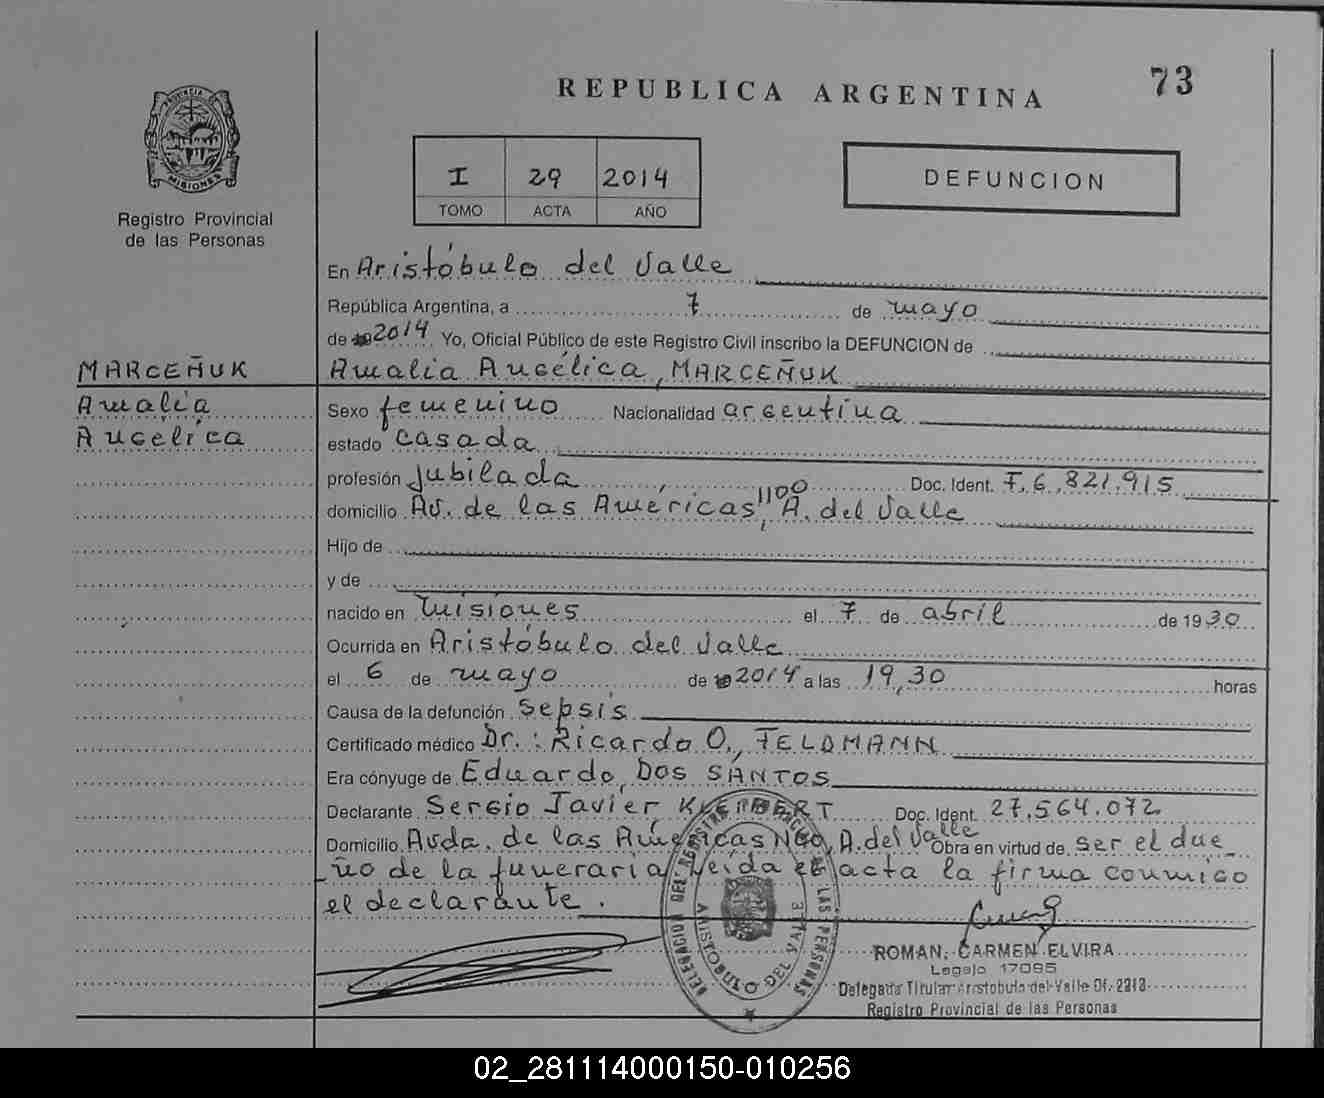 73
REPUBLICA ARGENTINA
PROVINCIA DE
MISIONES
Registro Provincial
de las Personas
I 29 2014
TOMO ACTA AÑO
DEFUNCION
En Aristóbulo del Valle
República Argentina, a 7 de mayo
de 2014 Yo, Oficial Público de este Registro Civil inscribo la DEFUNCION de
MARCEÑUK
Amalia
Angélica
Amalia Angélica, MARCEÑUK
Sexo femenino Nacionalidad argentina
estado casada
profesión jubilada Doc. Ident. F. 6.821.915
domicilio Av. de las Américas, 1100 A. del Valle
Hijo de
y de
nacido en Misiones el 7 de abril de 1930
Ocurrida en Aristóbulo del Valle
el 6 de mayo de 2014 a las 19,30 horas
Causa de la defunción sepsis
Certificado médico Dr.: Ricardo O., FELDMANN
Era cónyuge de Eduardo, DOS SANTOS
Declarante Sergio Javier, Doc. Ident. 27.564.072
Domicilio Avda. de las Américas A. del Valle Obra en virtud de ser el due
ño de la funeraria Leída el acta la firma conmigo
el declarante.
DELEGACION DEL REGISTRO PROVINCIAL DE LAS PERSONAS
ARISTOBULO DEL VALLE
ROMAN, CARMEN ELVIRA
Legajo 17085
Delegada Titular Aristobulo del Valle Of. 2213
Registro Provincial de las Personas
02_281114000150-010256